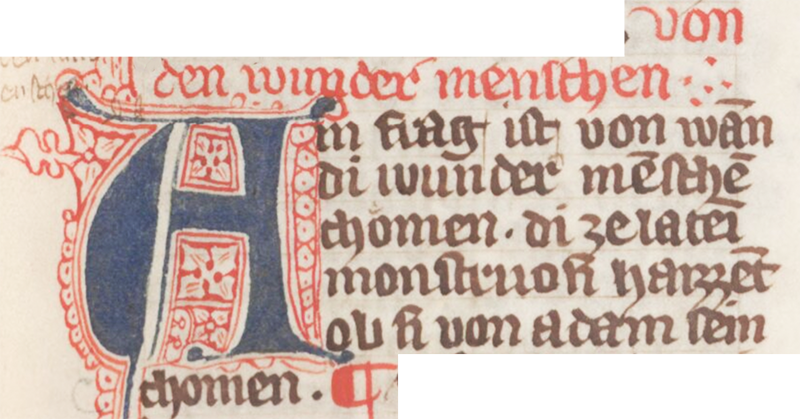 von
den wunder menschen
Ain frag ist von wān
di wunder mēschē
chomen. di ze lateī
monstruosi haizzēt
ob si von adam sein
chomen. ¶